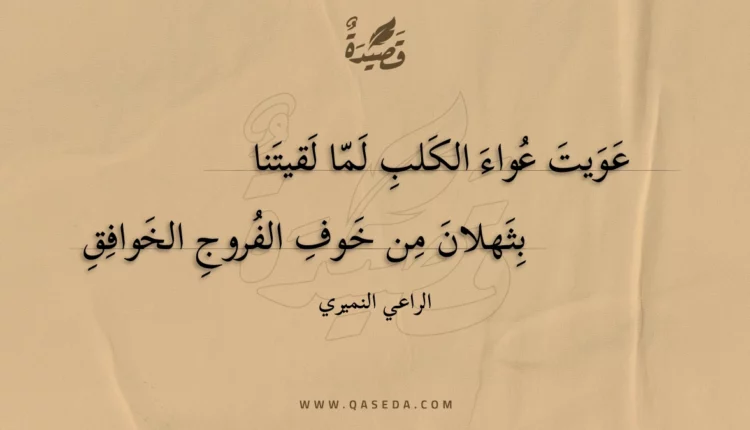 قَصِيدَةٌ
عَوَيتَ عُواءَ الكَلبِ لَمّا لَقيتَنا
بِثَهلانَ مِن خَوفِ الفُروجِ الخَوافِقِ
الراعي النميري
WWW.QASEDA.COM